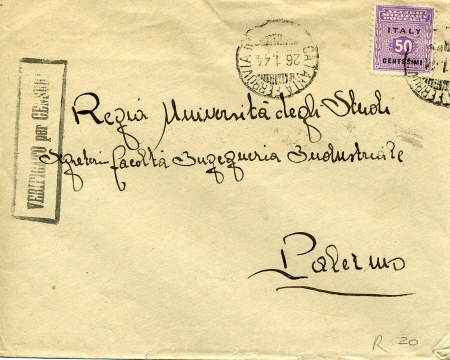 CATANIA FERROVIA
26.1.44
ITALY
50
CENTESIMI
VERIFICATO per CENSURA
Regia Università degli Studi
Segreteria facoltà Ingegneria Industriale
Palermo
R 20